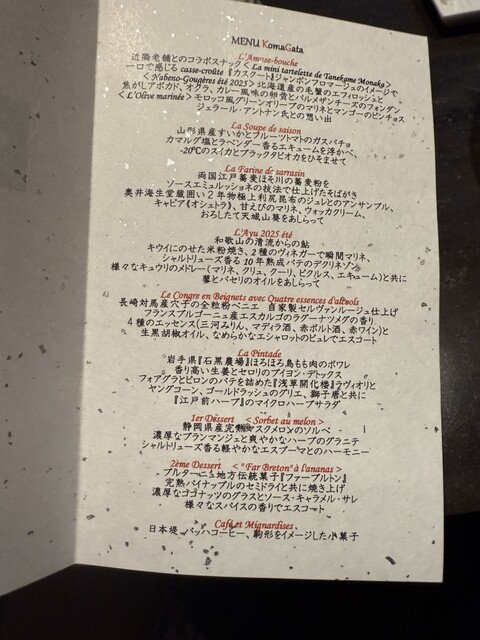 MENU KomaGata
L'Amuse-bouche
近隣老舗とのコラボスナック《La mini tartelette de Tanekame Monaka》
一口で感じる casse-croûte『カスクート』ジャンボンフロマージュのイメージで
<Nabeno-Gougères été 2025> 北海道産の毛蟹のエフィロッシェと
焦がしアボカド、オクラ、カレー風味の卵黄とパルメザンチーズのフォンダン
<L'Olive marinée> モロッコ風グリーンオリーブのマリネとマンゴーのピンチョス
ジェラール・アントナン氏との想い出
La Soupe de saison
山形県産すいかとフルーツトマトのガスパチョ
カマルグ塩とラベンダー香るエキュームを浮かべ、
-20℃のスイカとブラックタピオカをひそませて
La Farine de sarrasin
両国江戸蕎麦ほそ川の蕎麦粉を
ソースエミュルッショネの技法で仕上げたそばがき
奥井海生堂蔵囲い2年物極上利尻昆布のジュレとのアンサンブル、
キャビア《オシェトラ》、甘えびのマリネ、ウォッカクリーム、
おろしたて天城山葵をあしらって
L'Ayu 2025 été
和歌山の清流からの鮎
キウイにのせた米粉焼き、2種のヴィネガーで瞬間マリネ、
シャルトリューズ香る10年熟成パテのデクリネゾン
様々なキュウリのメドレー(マリネ、クリュ、クーリ、ピクルス、エキューム)と共に
蓼とパセリのオイルをあしらって
Le Congre en Beignets avec Quatre essences d'alcools
長崎対馬産穴子の全粒粉ベニエ 自家製セルヴァンルージュ仕上げ
フランスブルゴーニュ産エスカルゴのラグーナツメグの香り
4種のエッセンス(三河みりん、マディラ酒、赤ポルト酒、赤ワイン)と
生黒胡椒オイル、なめらかなエシャロットのピュレでエスコート
La Pintade
岩手県『石黒農場』ほろほろ鳥もも肉のポワレ
香り高い生姜とセロリのブイヨン・デトックス
フォアグラとピロンのパテを詰めた『浅草開化楼』ラヴィオリと
ヤングコーン、ゴールドラッシュのグリエ、獅子唐と共に
『江戸前ハーブ』のマイクロハーブサラダ
1er Dessert <Sorbet au melon>
静岡県産完熟マスクメロンのソルベ
濃厚なブランマンジェと爽やかなハーブのグラニテ
シャルトリューズ香る軽やかなエスプーマとのハーモニー
2ème Dessert <"Far Breton" à l'ananas>
ブルターニュ地方伝統菓子『ファーブルトン』
完熟パイナップルのセミドライと共に焼き上げ
濃厚なココナッツのグラスとソース・キャラメル・サレ
様々なスパイスの香りでエスコート
Café et Mignardises
日本堤、バッハコーヒー、駒形をイメージした小菓子